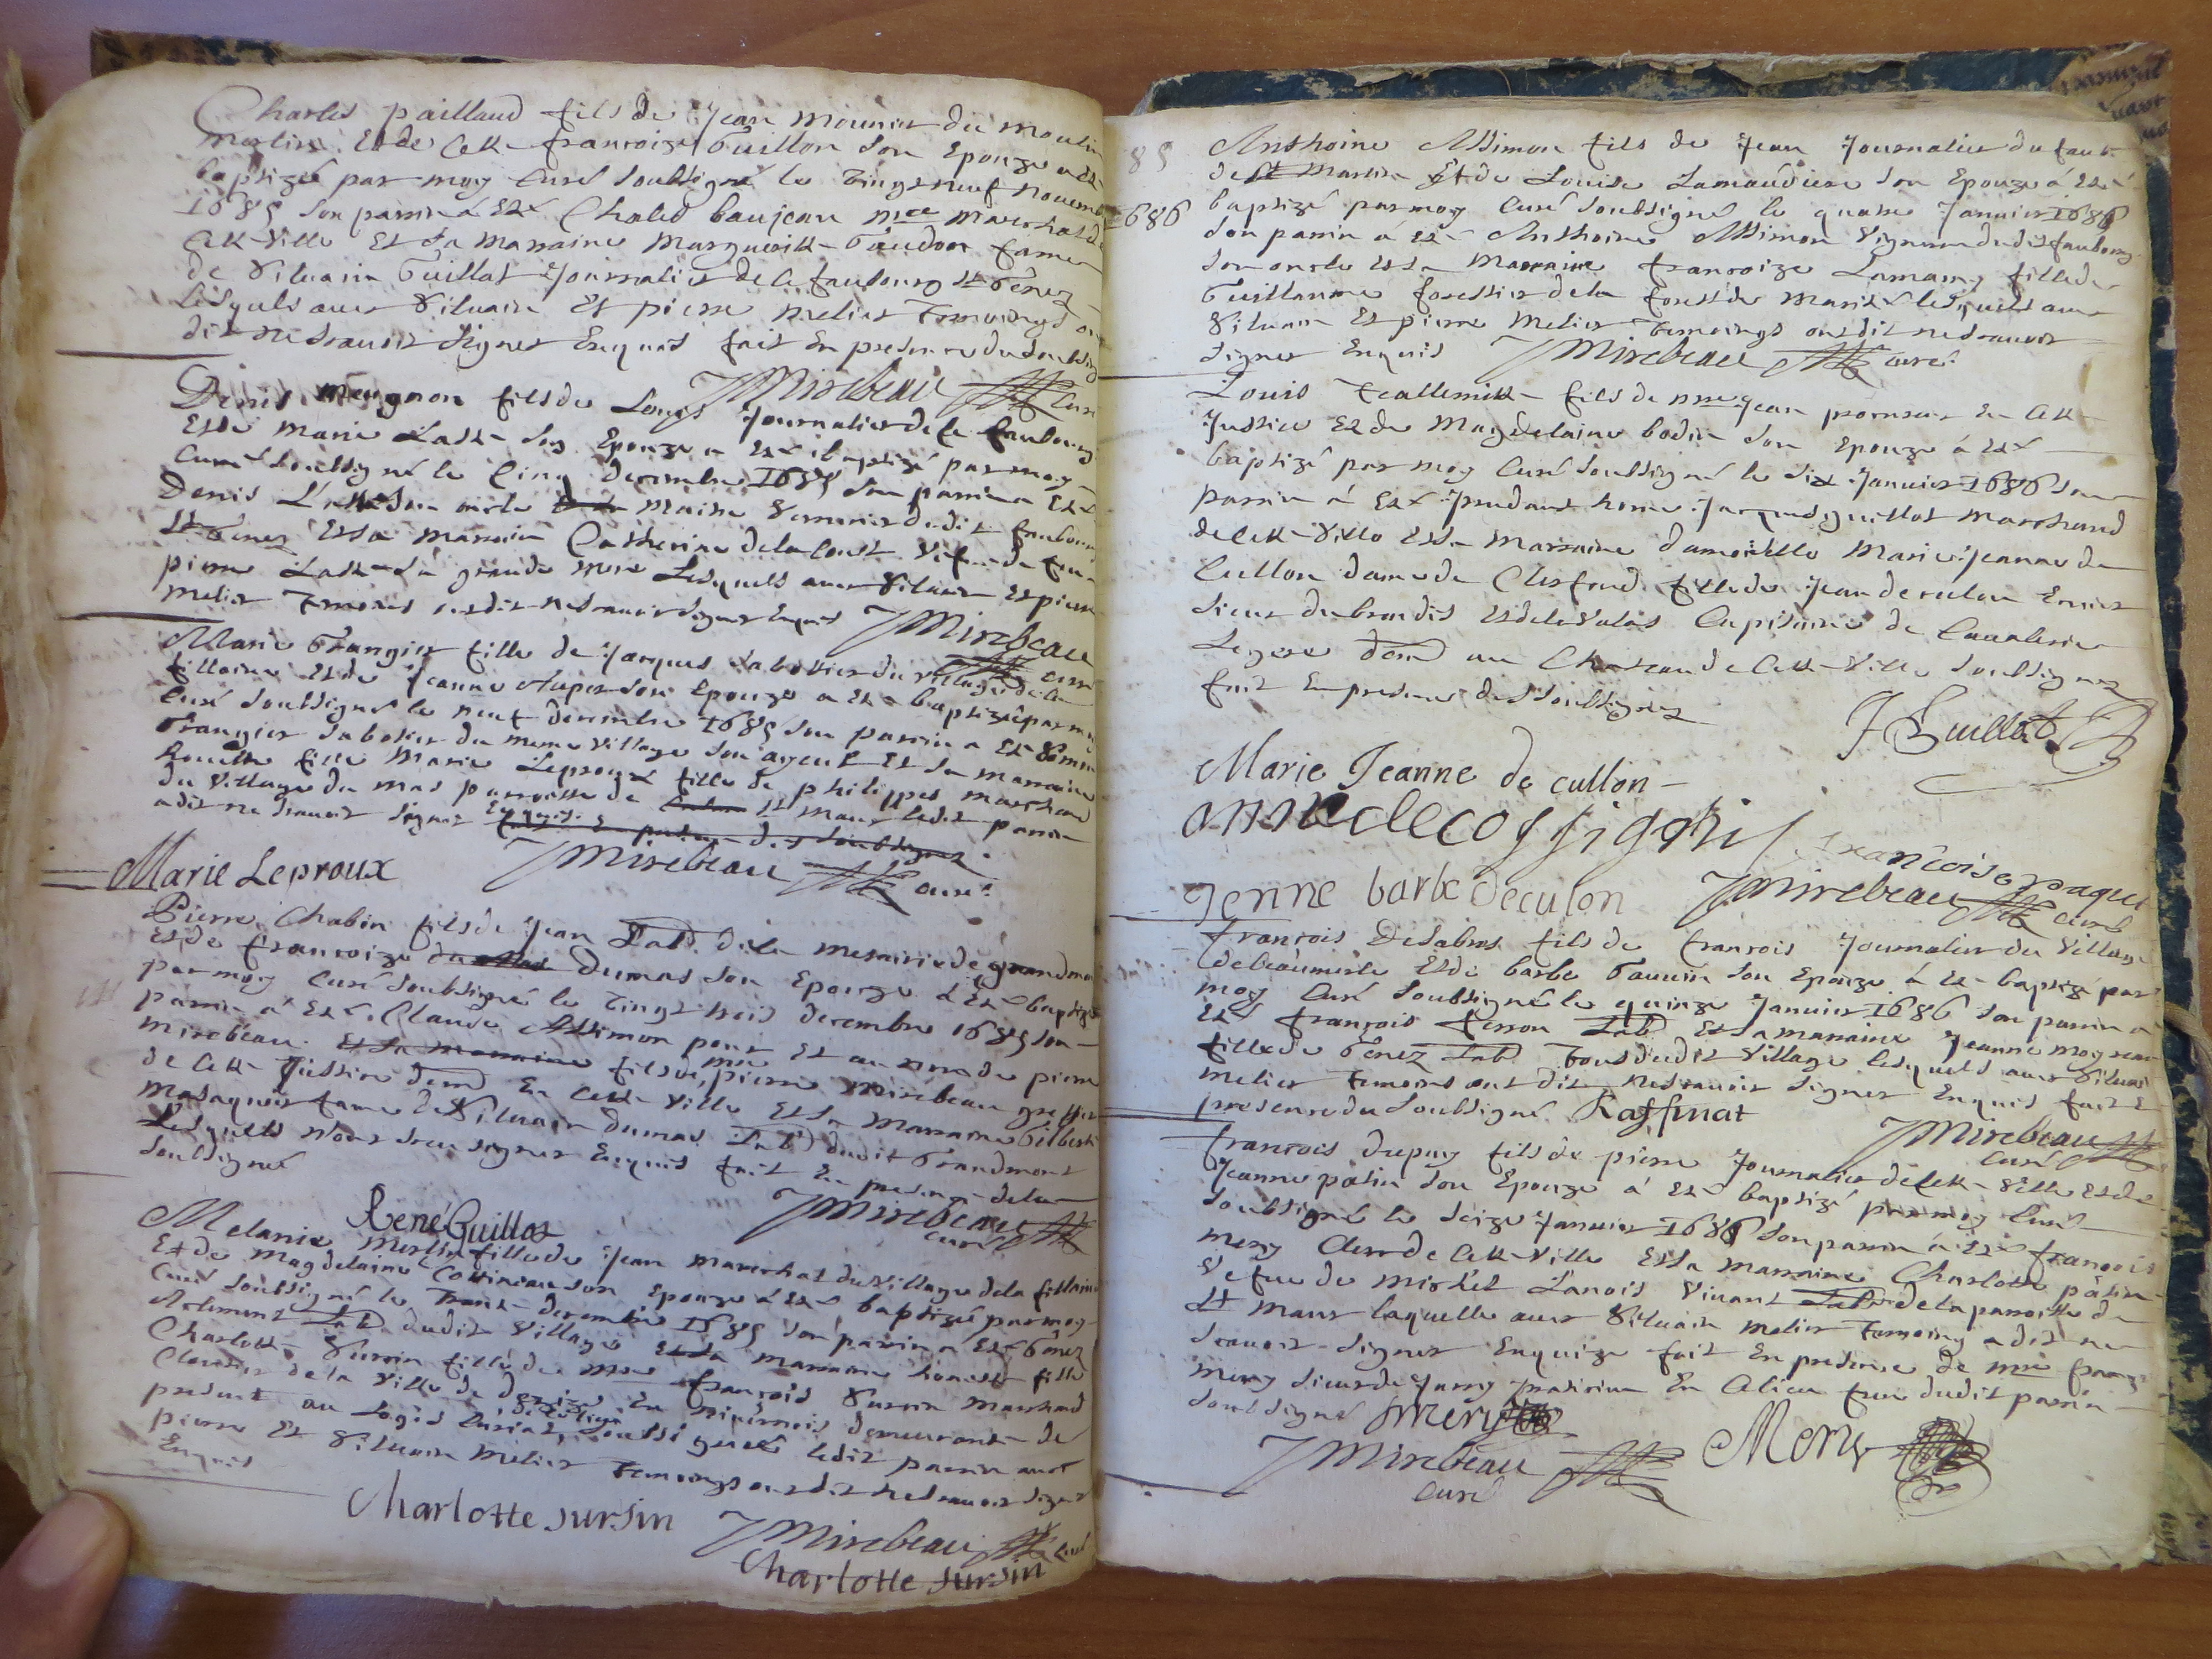 Charles paillaud fils de Jean mounier du moulin
merlin Et de Cette francoize Guillon son Epouze a este
baptizé par moy Curé soubsigné le vingt neuf novembre
1685 son parrin a Esté Charles baujean mre mareschal de
Cette Ville Et sa Marraine Marguerite Gaudon famme
de Siluain Guillot Journalier de Ce faubourg St Genez
Lesquels auec Siluain Et pierre melier temoings ont
dit ne scauoir signer Enquis fait En presence du soubsigné
JMirebeau Curé
Denis meugnon fils de Louis Journalier de Ce faubourg
Et de Marie Laste son Epouze a Esté baptizé par moy
Curé soubsigné le Cinq decembre 1685 son parrin a Esté
Denis Laste son oncle Maitre dudit faubourg
St Genez Et sa marraine Catherine de la Coust Vefue de feu
pierre Laste sa grande mere Lesquels auec Siluain Et pierre
melier temoins ont dit ne scauoir signer Enquis JMirebeau
curé
Marie Grangier fille de Jacques sabottier du village de la
fillaine Et de Jeanne Auper son Epouze a Esté baptizée par moy
Curé soubsigné le neuf decembre 1685 son parrin a Esté
Grangier sabotier du meme Village son ayeul Et sa marraine
honeste fille Marie Leproux fille de philippes marchand
du Village du mas parroisse de St Maur ledit parrin
a dit ne scauoir signer Enquis fait En presence des soubsignez
Marie Leproux JMirebeau curé
Pierre Chabin fils de Jean Lab. de la metairie de grandmont
Et de francoize Dumas son Epouze a Esté baptizé
par moy Curé soubsigné le vingt trois decembre 1685 son
parrin a Esté Claude Assimon pour Et au nom de pierre
mirebeau Et sa marraine fils de mre pierre mirebeau greffier
de Cette Justice dem En cette Ville Et sa Marraine Gilberte
Masaquoir fame de Siluain dumas Lab dudit Grandmont
Lesquels n'ont sceu signer Enquis fait En presence de
soubsigné
René Guillot JMirebeau curé
Melanie Merlin fille de Jean marechal du Village de la fillaine
Et de Magdelaine Cottineau son Epouze a Esté baptizée par moy
Curé soubsigné le Trente decembre 1685 son parrin a Esté Genez
Lab. dudit Village Et sa marraine honeste fille
Charlotte Sursin fille de mre francois Sursin marchand
de la Ville de En niuernois demeurante de
present au Logis Curial soubsignée ledit parrin auec
pierre Et Siluain Melier temoings ont dit ne scauoir signer
Enquis
Charlotte sursin JMirebeau Curé
Charlotte sursin
85
1686
Anthoine Assimon fils de Jean Journalier du faub
de St Martin Et de Louise Lamaudiere son Epouze a Esté
baptizé par moy Curé soubsigné le quatre Januier 1686
son parrin a Esté Anthoine Assimon Vigneron dudit faubourg
son oncle Et sa Marraine francoize Lamamy fille de
Guillaume forestier de la forest de lesquels auec
Siluain Et pierre Melier temoings ont dit ne scauoir
signer Enquis JMirebeau curé
Louis teallemitte fils de mre Jean procureur En Cette
Justice Et de Magdelaine bodin son Epouze a Esté
baptizé par moy Curé soubsigné le six Januier 1686 son
parrin a Esté prudant home Jacques guillot marchand
de Cette Ville Et sa Marraine damoizelle Marie Jeanne de
Cullon dame de Clerfond fille de Jean de culon Ecuier
sieur du brandis Et de la Valas Capitaine de Cauallerie
Legere dem au Chateau de Cette Ville soubsignez
fait En presence des soubsignez
J Guillot
Marie Jeanne de cullon
anne de cossigohi
francoise paquet
Jenne barbe deculon JMirebeau curé
francois Desabres fils de francois Journalier du Village
de beaumerle Et de barbe Gauuin son Epouze a Esté baptizé par
moy Curé soubsigné le quinze Januier 1686 son parrin a
Esté francois ferron Lab. Et sa marraine Jeanne moyreau
fille de Genez Lab. tous dudit Village lesquels auec Siluain
melier temoins ont dit ne scauoir signer Enquis fait En
presence du soubsigné Raffinat
JMirebeau curé
francois dupuy fils de pierre Journalier de Cette Ville Et de
Jeanne patin son Epouze a Esté baptizé par moy Curé
soubsigné le seize Januier 1686 son parrin a Esté francois
mery Clerc de Cette Ville Et sa marraine Charlotte patin
Vefue de Michel Lanois Viuant Lab de la parroisse de
St Maur laquelle auec Siluain melier temoing a dit ne
scauoir signer Enquize fait En presence de mre francois
mery sieur de Jarry praticien En Ce lieu frere dudit parrin
soubsigné Mery
Mery
JMirebeau
curé